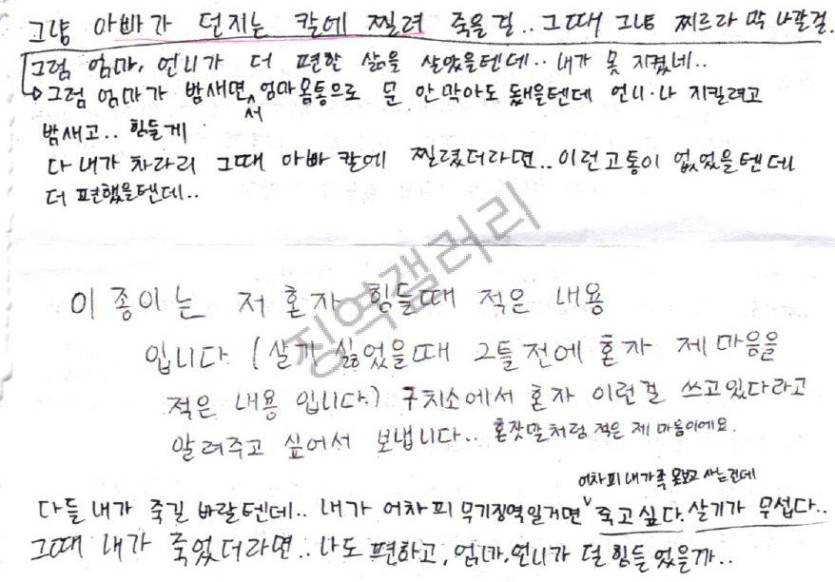 그냥 아빠가 던지는 칼에 찔려 죽을걸.. 그때 그냥 찌르라 막 나갈걸.
그럼 엄마, 언니가 더 편한 삶을 살았을텐데.. 내가 못 지켰네..
그럼 엄마가 밤새면서, 엄마 몸통으로 문 안 막아도 됐을텐데 언니·나 지킬려고
밤새고.. 힘들게
다 내가 차라리 그때 아빠 칼에 찔렸더라면.. 이런고통이 없었을텐데
더 편했을텐데..
징역갤러리
이 종이는 저 혼자 힘들때 적은 내용
입니다. (살기 싫었을때 그틀전에 혼자 제 마음을
적은 내용 입니다.) 구치소에서 혼자 이런걸 쓰고있다라고
알려주고 싶어서 보냅니다.. 혼잣말처럼 적은 제 마음이에요.
어차피 내가족 못보고 사는건데
다들 내가 죽길 바랄텐데.. 내가 어차피 무기징역일거면 죽고싶다. 살기가 무섭다..
그때 내가 죽었더라면.. 나도 편하고, 엄마, 언니가 덜 힘들었을까..